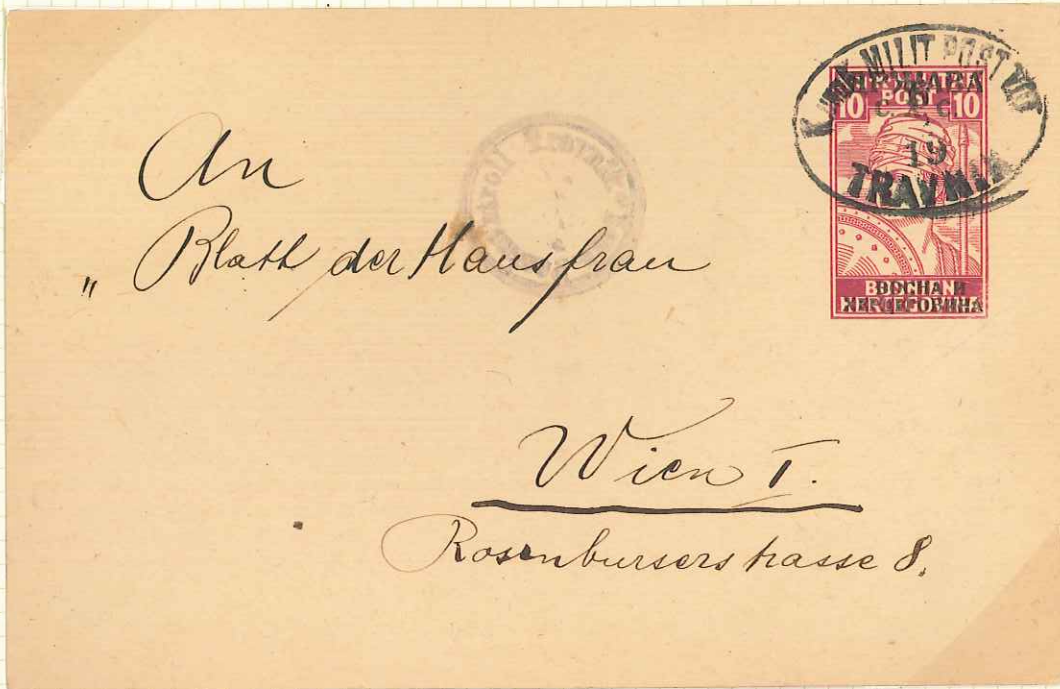 K. und K. MILIT. POST
10 POST 10
19
TRAVNIK
БОСНА И
ХЕРЦЕГОВИНА
An
„ Blatt der Hausfrau
Wien I.
Rosenburserstrasse 8.